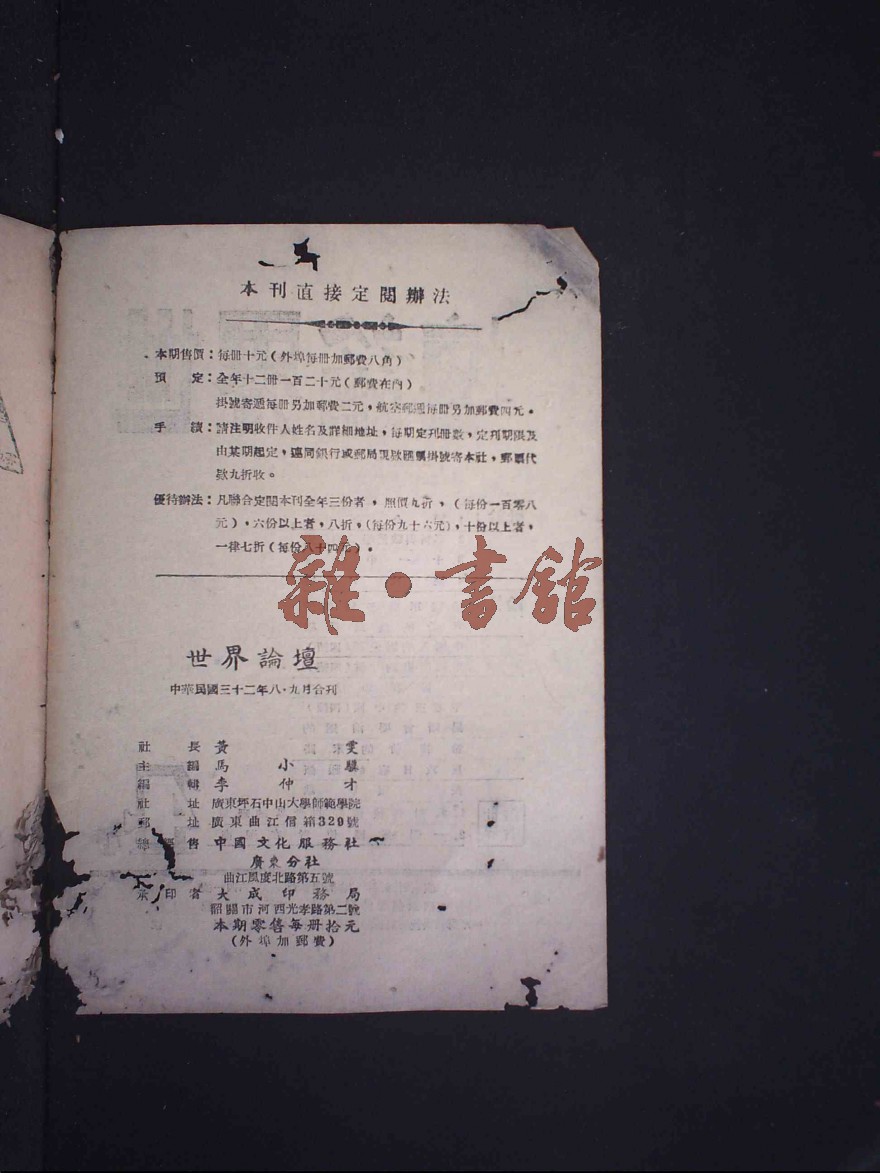 本刊直接定閱辦法
本期售價：每冊十元（外埠每冊加郵費八角）
預　定：全年十二冊一百二十元（郵費在內）
掛號寄遞每冊另加郵費二元，航空郵遞每冊另加郵費四元。
手　續：請注明收件人姓名及詳細地址，每期定刊冊數，定刊期限及
由某期起定，連同銀行或郵局現欵匯票掛號寄本社，郵票代
欵九折收。
優待辦法：凡聯合定閱本刊全年三份者，照價九折，（每份一百零八
元），六份以上者，八折，（每份九十六元），十份以上者，
一律七折（每份八十四元）。
雜·書館
世界論壇
中華民國三十二年八·九月合刊
社　長　黃　雯
主　編　馬　小
編　輯　李　仲　才
社　址　廣東坪石中山大學師範學院
郵　址　廣東曲江信箱329號
總　售　中國文化服務社
廣東分社
曲江風度北路第五號
承印者　大成印務局
韶關市河西光孝路第二號
本期零售每冊拾元
（外埠加郵費）